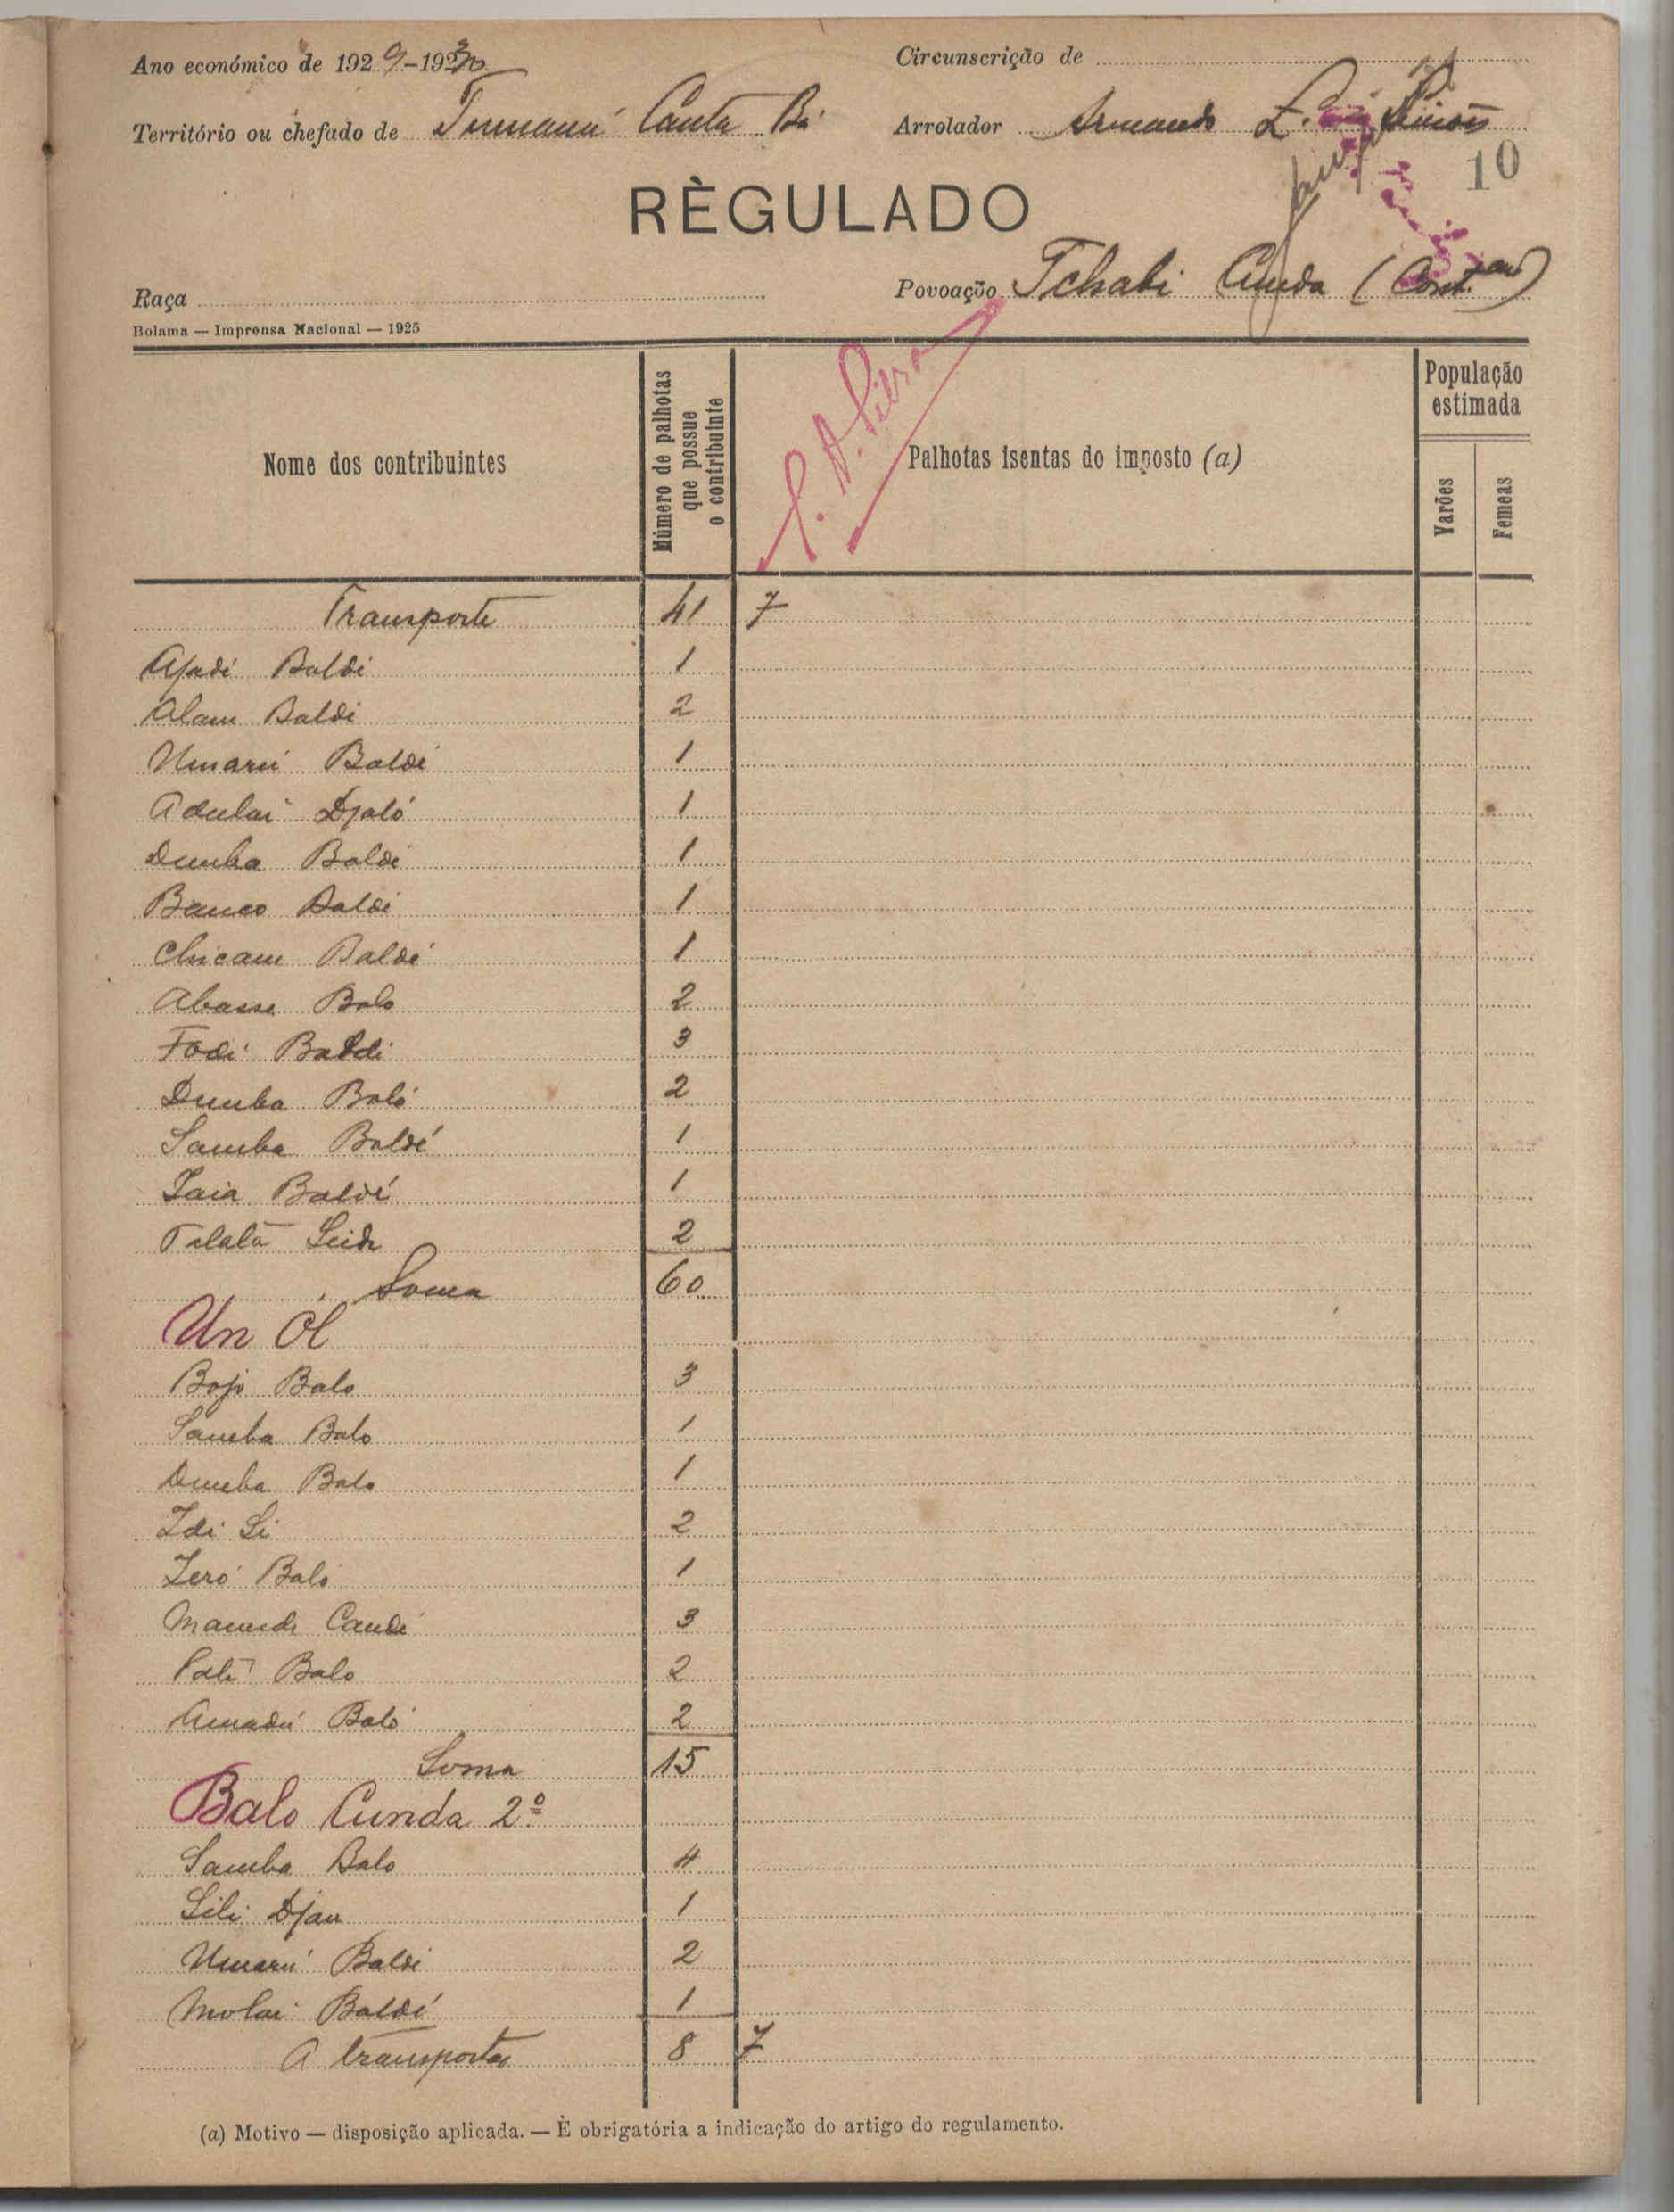 Ano económico de 1929-1930
Circunscrição de
Território ou chefado de Canta Bá
Arrolador Armando Z. Simões
10
RÈGULADO
Raça
Povoação Tchabi Cunda (Cont.am)
Bolama — Imprensa Nacional — 1925
Nome dos contribuintes
Número de palhotas que possue o contribuinte
Palhotas isentas do imposto (a)
População estimada
Varões
Femeas
Transporte 41 7
Ajadi Baldi 1
Alam Baldi 2
Umarú Baldé 1
Adulai Djaló 1
Dumba Baldé 1
Banco Baldi 1
Chicam Baldé 1
Abasse Balo 2
Fodi Baldi 3
Dumba Baló 2
Samba Baldé 1
Iaia Baldé 1
Telalá Seide 2
Soma 60
Un Ól
Boji Balo 3
Samba Balo 1
Dumba Balo 1
Idi Si 2
Iero Baló 1
Mamude Candé 3
Balo 2
Amadú Baló 2
Soma 15
Balo Cunda 2º
Samba Balo 4
Sili Djau 1
Umarú Baldi 2
Molai Baldé 1
A transportar 8 7
(a) Motivo — disposição aplicada. — È obrigatória a indicação do artigo do regulamento.